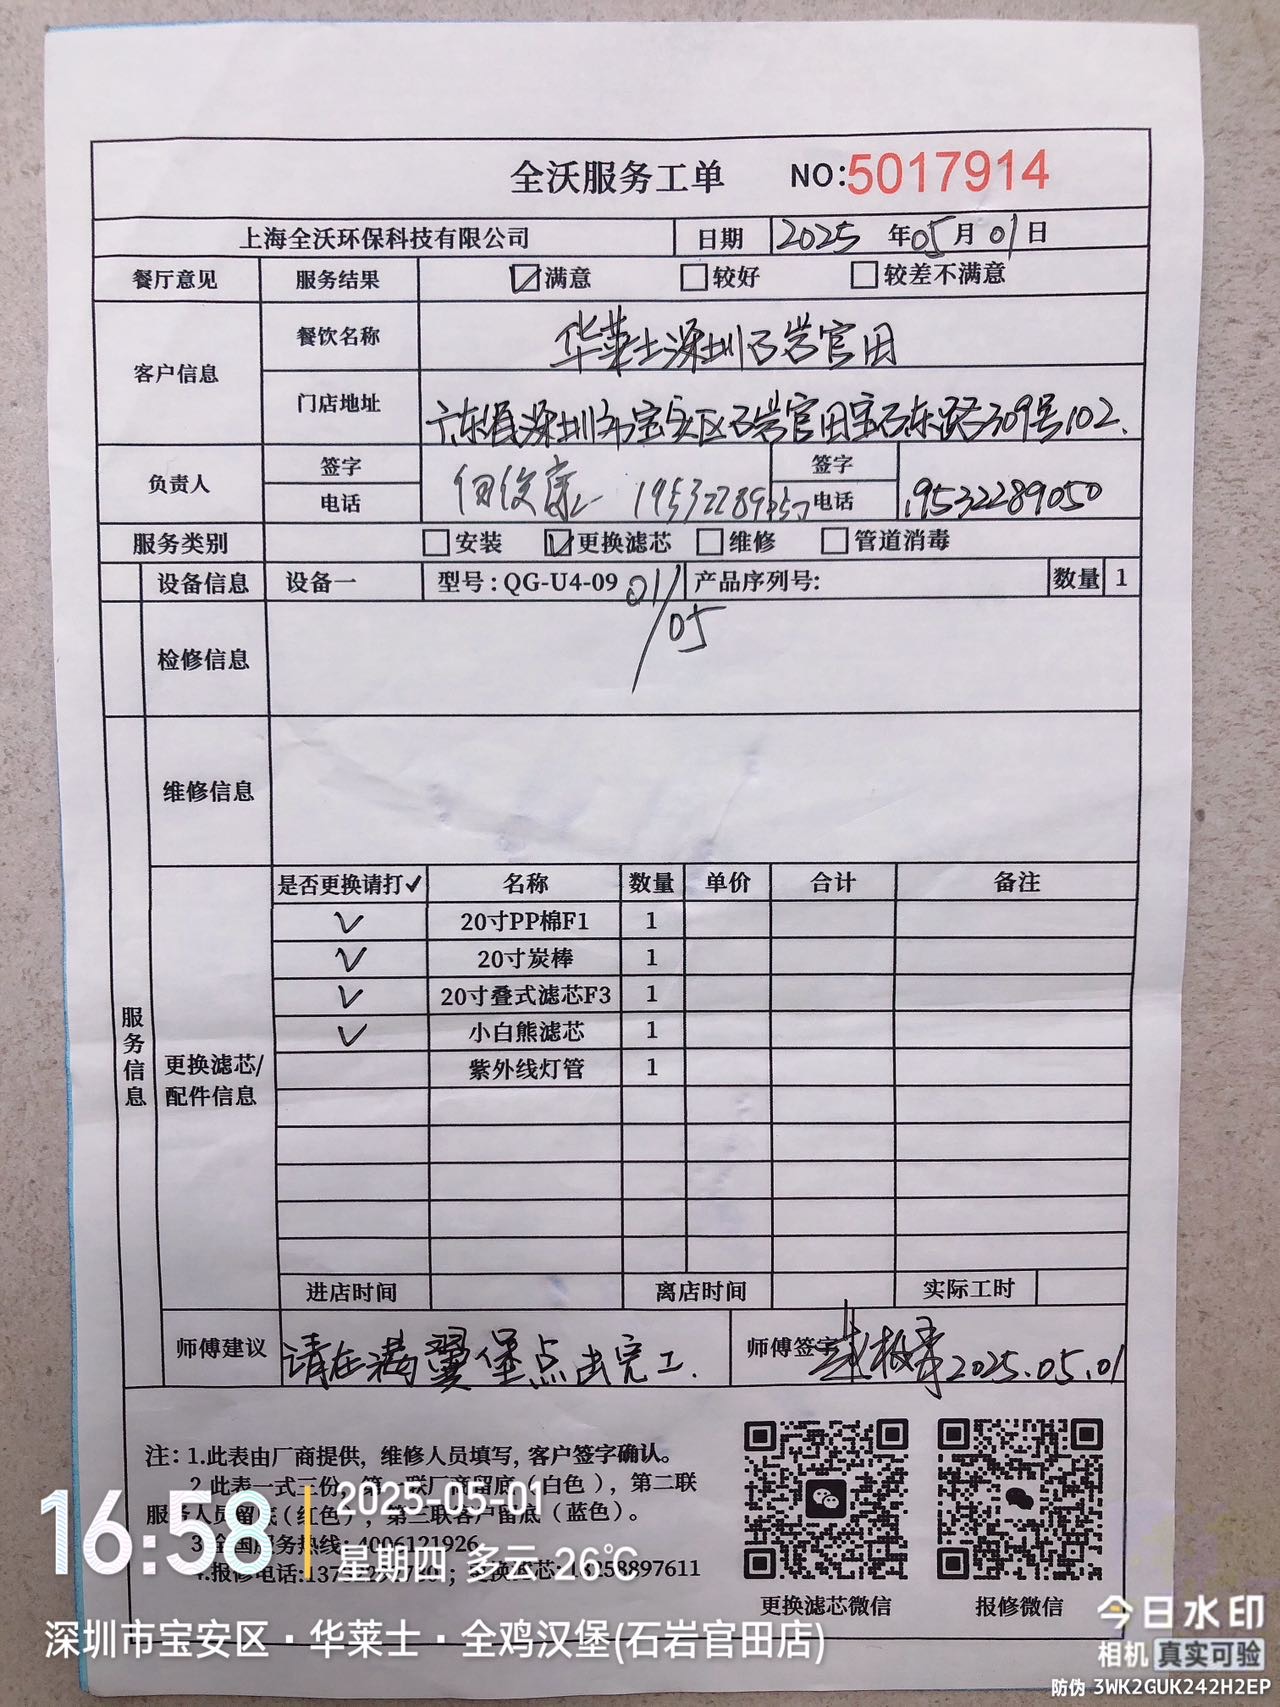 全沃服务工单 NO:5017914
上海全沃环保科技有限公司 日期 2025 年 05 月 01 日
餐厅意见 服务结果 满意 较好 较差不满意
客户信息 餐饮名称 华莱士深圳石岩官田
门店地址 广东省深圳市宝安区石岩官田宝石东路309号102.
负责人 签字 签字
电话 电话 19532289050
服务类别 安装 更换滤芯 维修 管道消毒
设备信息 设备一 型号:QG-U4-09 产品序列号: 数量 1
01/05
检修信息
维修信息
是否更换请打✓ 名称 数量 单价 合计 备注
✓ 20寸PP棉F1 1
✓ 20寸炭棒 1
✓ 20寸叠式滤芯F3 1
✓ 小白熊滤芯 1
紫外线灯管 1
服务信息
更换滤芯/
配件信息
进店时间 离店时间 实际工时
师傅建议 请在满翼堡点击完工. 师傅签字 2025.05.01
注:1.此表由厂商提供,维修人员填写,客户签字确认。
2.此表一式三份,第一联厂商留底(白色),第二联
服务人员留底(红色),第三联客户留底(蓝色)。
3.全国服务热线:4006121926
4.报修电话: 更换滤芯:
更换滤芯微信 报修微信
16:58 2025-05-01
星期四 多云 26℃
深圳市宝安区·华莱士·全鸡汉堡(石岩官田店)
今日水印
相机 真实可验
防伪 3WK2GUK242H2EP